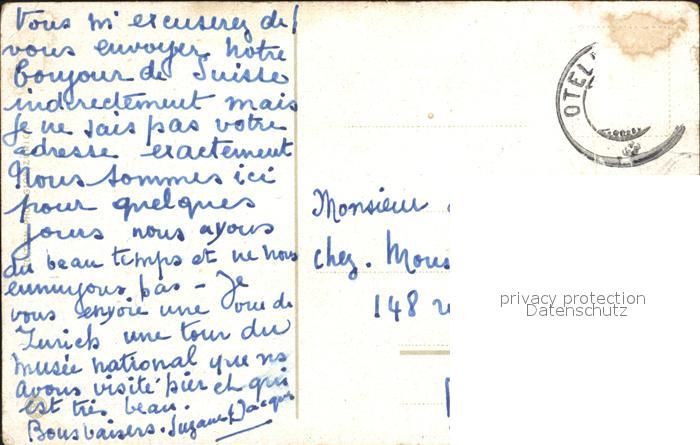 Vous m'excuserez de
vous envoyer notre
bonjour de Suisse
indirectement mais
je ne sais pas votre
adresse exactement
Nous sommes ici
pour quelques
jours nous ayons
du beau temps et ne nous
ennuyons pas - Je
vous envoie une vue de
Zurich une tour du
musée national que ns
avons visité hier et qui
est très beau.
Bons baisers. Suzanne Jacques
OTEL
Monsieur
chez. Mons
148 r
privacy protection
Datenschutz